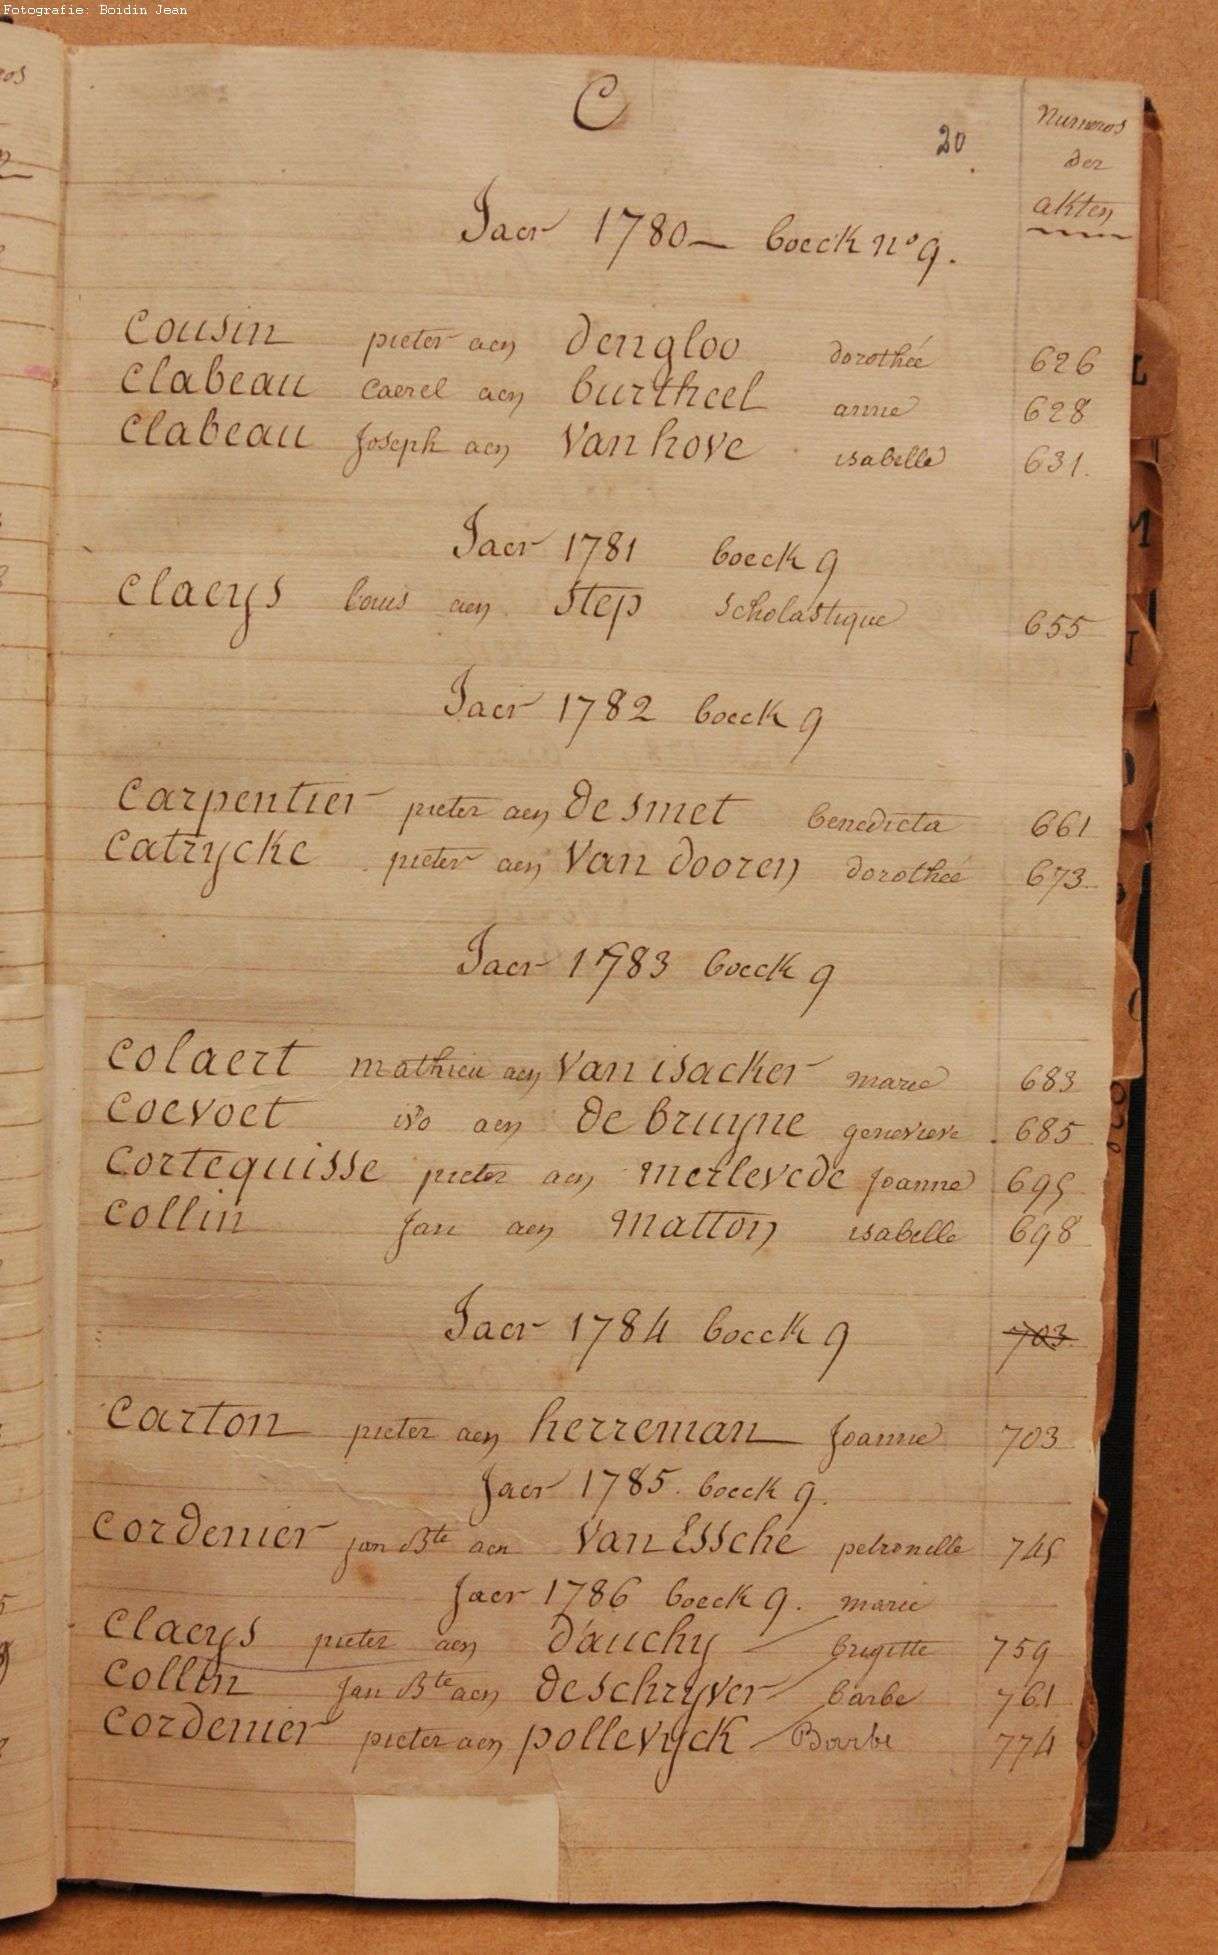 Fotografie: Boidin Jean
C
20.
Numeros
der
akten
Jaer 1780 — boeck n° 9.
Cousin pieter aen Dengloo dorothée 626
Clabeau Caerel aen burtheel anne 628
Clabeau Joseph aen Van hove isabelle 631.
Jaer 1781 boeck 9
Claeys louis aen Step Scholastique 655
Jaer 1782 boeck 9
Carpentier pieter aen De Smet benedicta 661
Catrycke pieter aen Van Dooren dorothée 673
Jaer 1783 boeck 9
Colaert mathieu aen Van isacker marie 683
Coevoet ivo aen De bruyne genevieve 685
Cortequisse pieter aen Merlevede Joanne 695
Collin Jan aen Matton isabelle 698
Jaer 1784 boeck 9 703
Carton pieter aen herreman Joanne 703
Jaer 1785. boeck 9.
Cordenier jan Bte aen Van Essche petronelle 745
Jaer 1786 boeck 9. marie
Claeys pieter aen D'auchy — brigitte 759
Collin Jan Bte aen De schryver — barbe 761
Cordenier pieter aen pollevyck — Barbe 774
L
M
N
O